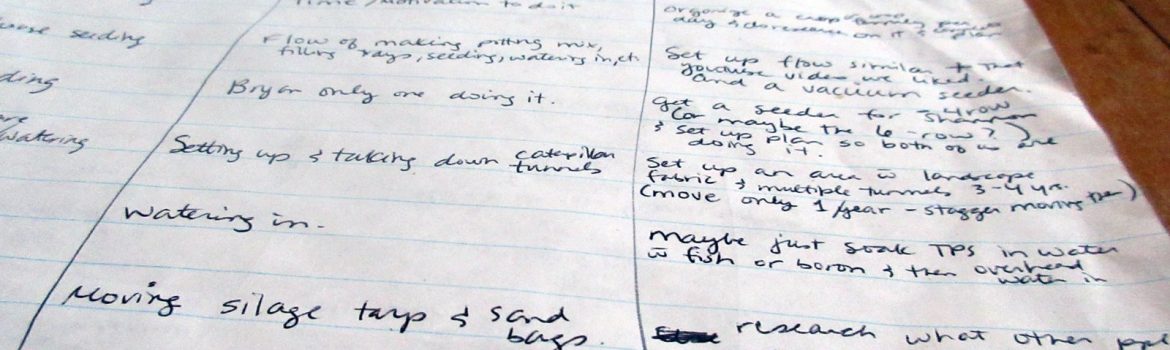 to do it
Organize a
day &
on it &
seeding
Flow of making potting mix,
filling trays, seeding, watering in, etc
Set up flow similar to that
youtube video we liked
and a vacuum seeder.
Bryan only one doing it.
get a seeder for Shannon
(or maybe the 6-row?)
& set up plan so both of us are
doing it.
watering
Setting up & taking down caterpillar
tunnels
Set up an area w landscape
fabric & multiple tunnels 3-4 yrs.
(move only 1/year - stagger moving
Watering in.
maybe just soak TPS in water
w fish or boron & then overhead
water in
Moving silage tarp & sand
bags.
research what other